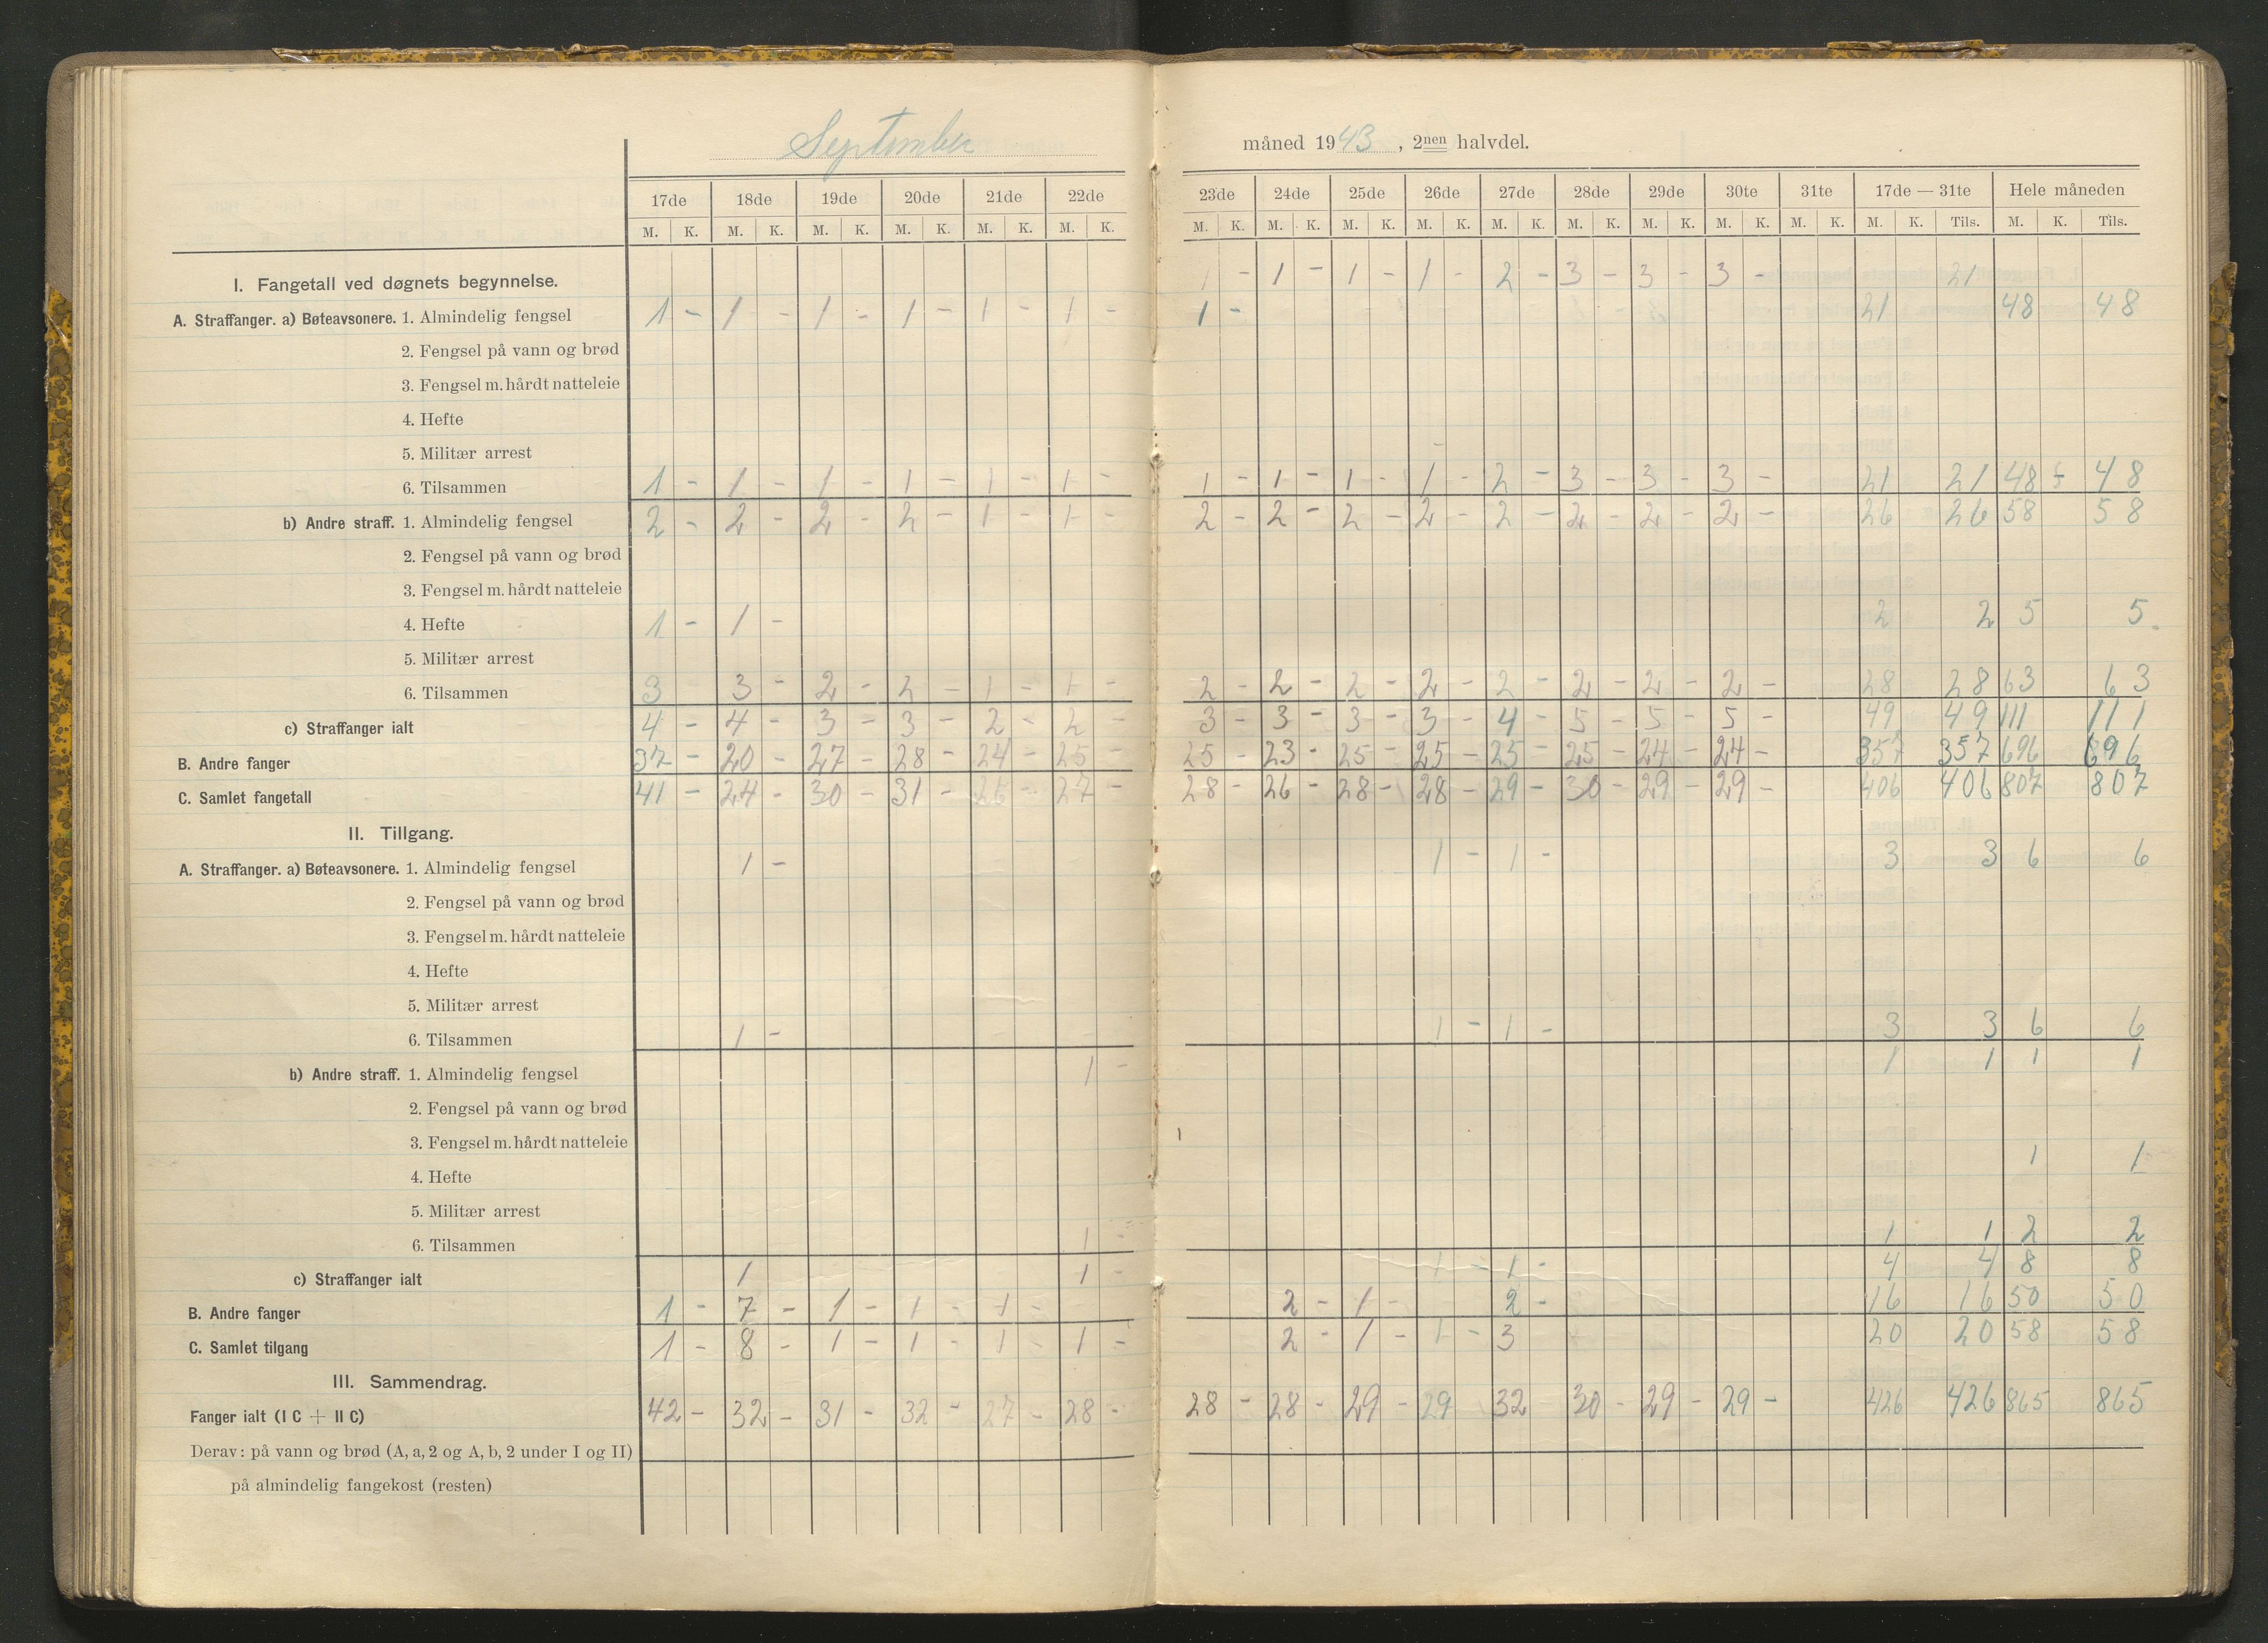 September måned 1943, 2nen halvdel.
17de 18de 19de 20de 21de 22de 23de 24de 25de 26de 27de 28de 29de 30te 31te 17de — 31te Hele måneden
M. K. M. K. M. K. M. K. M. K. M. K. M. K. M. K. M. K. M. K. M. K. M. K. M. K. M. K. M. K. M. K. Tils. M. K. Tils.
I. Fangetall ved døgnets begynnelse. 1 - 1 - 1 - 1 - 2 - 3 - 3 - 3 - 21
A. Straffanger. a) Bøteavsonere. 1. Almindelig fengsel 1 - 1 - 1 - 1 - 1 - 1 - 1 - 21 48 48
2. Fengsel på vann og brød
3. Fengsel m. hårdt natteleie
4. Hefte
5. Militær arrest
6. Tilsammen 1 - 1 - 1 - 1 - 1 - 1 - 1 - 1 - 1 - 1 - 2 - 3 - 3 - 3 - 21 21 48 48
b) Andre straff. 1. Almindelig fengsel 2 - 2 - 2 - 2 - 1 - 1 - 2 - 2 - 2 - 2 - 2 - 2 - 2 - 2 - 26 26 58 58
2. Fengsel på vann og brød
3. Fengsel m. hårdt natteleie
4. Hefte 1 - 1 - 2 2 5 5
5. Militær arrest
6. Tilsammen 3 3 - 2 - 2 - 1 - 1 - 2 - 2 - 2 - 2 - 2 - 2 - 2 - 2 - 28 28 63 63
c) Straffanger ialt 4 - 4 - 3 - 3 - 2 - 2 - 3 - 3 - 3 - 3 - 4 - 5 - 5 - 5 - 49 49 111 111
B. Andre fanger 37 - 20 - 27 - 28 - 24 - 25 - 25 - 23 - 25 - 25 - 25 - 25 - 24 - 24 - 357 357 696 696
C. Samlet fangetall 41 - 24 - 30 - 31 - 26 - 27 - 28 - 26 - 28 - 28 - 29 - 30 - 29 - 29 - 406 406 807 807
II. Tillgang.
A. Straffanger. a) Bøteavsonere. 1. Almindelig fengsel 1 - 1 - 1 - 3 3 6 6
2. Fengsel på vann og brød
3. Fengsel m. hårdt natteleie
4. Hefte
5. Militær arrest
6. Tilsammen 1 - 1 - 1 - 3 3 6 6
b) Andre straff. 1. Almindelig fengsel 1 - 1 1 1 1
2. Fengsel på vann og brød
3. Fengsel m. hårdt natteleie
4. Hefte 1 1
5. Militær arrest
6. Tilsammen 1 - 1 1 2 2
c) Straffanger ialt 1 1 - 1 - 1 - 4 4 8 8
B. Andre fanger 1 - 7 - 1 - 1 - 1 - 2 - 1 - 2 - 16 16 50 50
C. Samlet tilgang 1 - 8 - 1 - 1 - 1 - 1 - 2 - 1 - 1 - 3 20 20 58 58
III. Sammendrag.
Fanger ialt (I C + II C) 42 - 32 - 31 - 32 - 27 - 28 - 28 - 28 - 29 - 29 32 30 - 29 - 29 - 426 426 865 865
Derav: på vann og brød (A, a, 2 og A, b, 2 under I og II)
på almindelig fangekost (resten)